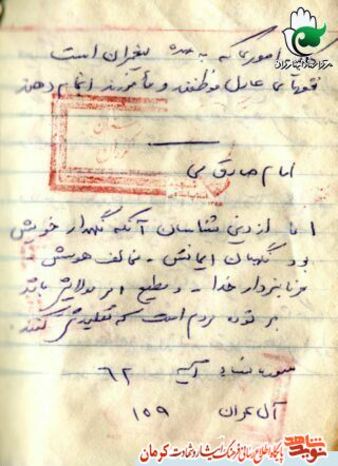 اموری که به عهده پیغمبران است
فقهای عادل موظفند و مأمورند انجام دهند
امام صادق می
اما از دین شناسان آنکه نگهدار خویش
بود نگهبان ایمانش - مخالف هوسش
فرمانبردار خدا - و مطیع امر مولایش باشد
بر توده مردم است که تقلیدش کنند
سوره نساء آیه ۶۲
آل عمران ۱۵۹
نوید شاهد
پایگاه اطلاع رسانی فرهنگ ایثار و شهادت کرمان